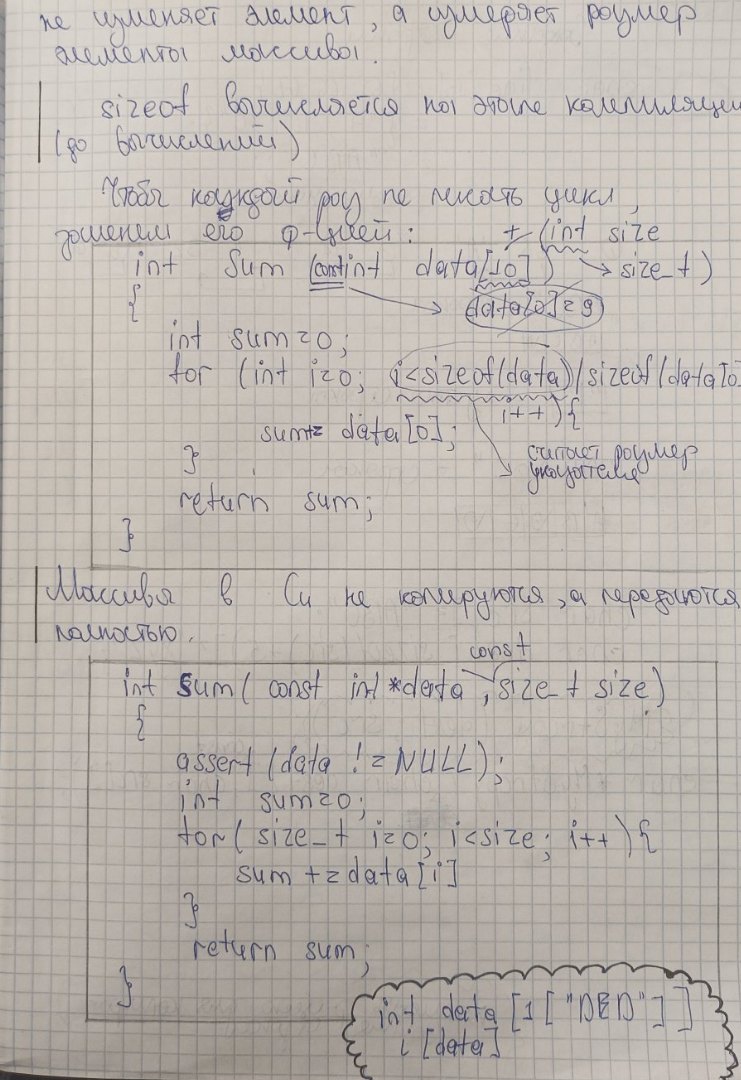 не изменяет элемент, а измеряет размер
элементы массива.
sizeof вычисляется на этапе компиляции
(до вычислений)
Чтобы каждый раз не писать цикл,
заменем его ф-цией: + (int size
int Sum (const int data[10]) → size_t)
{ data[0]=9
int sum=0;
for (int i=0; i<sizeof(data)/sizeof(data[0
i++){
sum+= data[0]; считает размер
} указателя
return sum;
}
Массивы в Си не копируются, а передаются
полностью.
const
int sum( const int *data , size_t size)
{
assert (data != NULL);
int sum=0;
for( size_t i=0; i<size; i++){
sum +=data[i]
}
return sum;
}
int data [1["DED"]]
i[data]